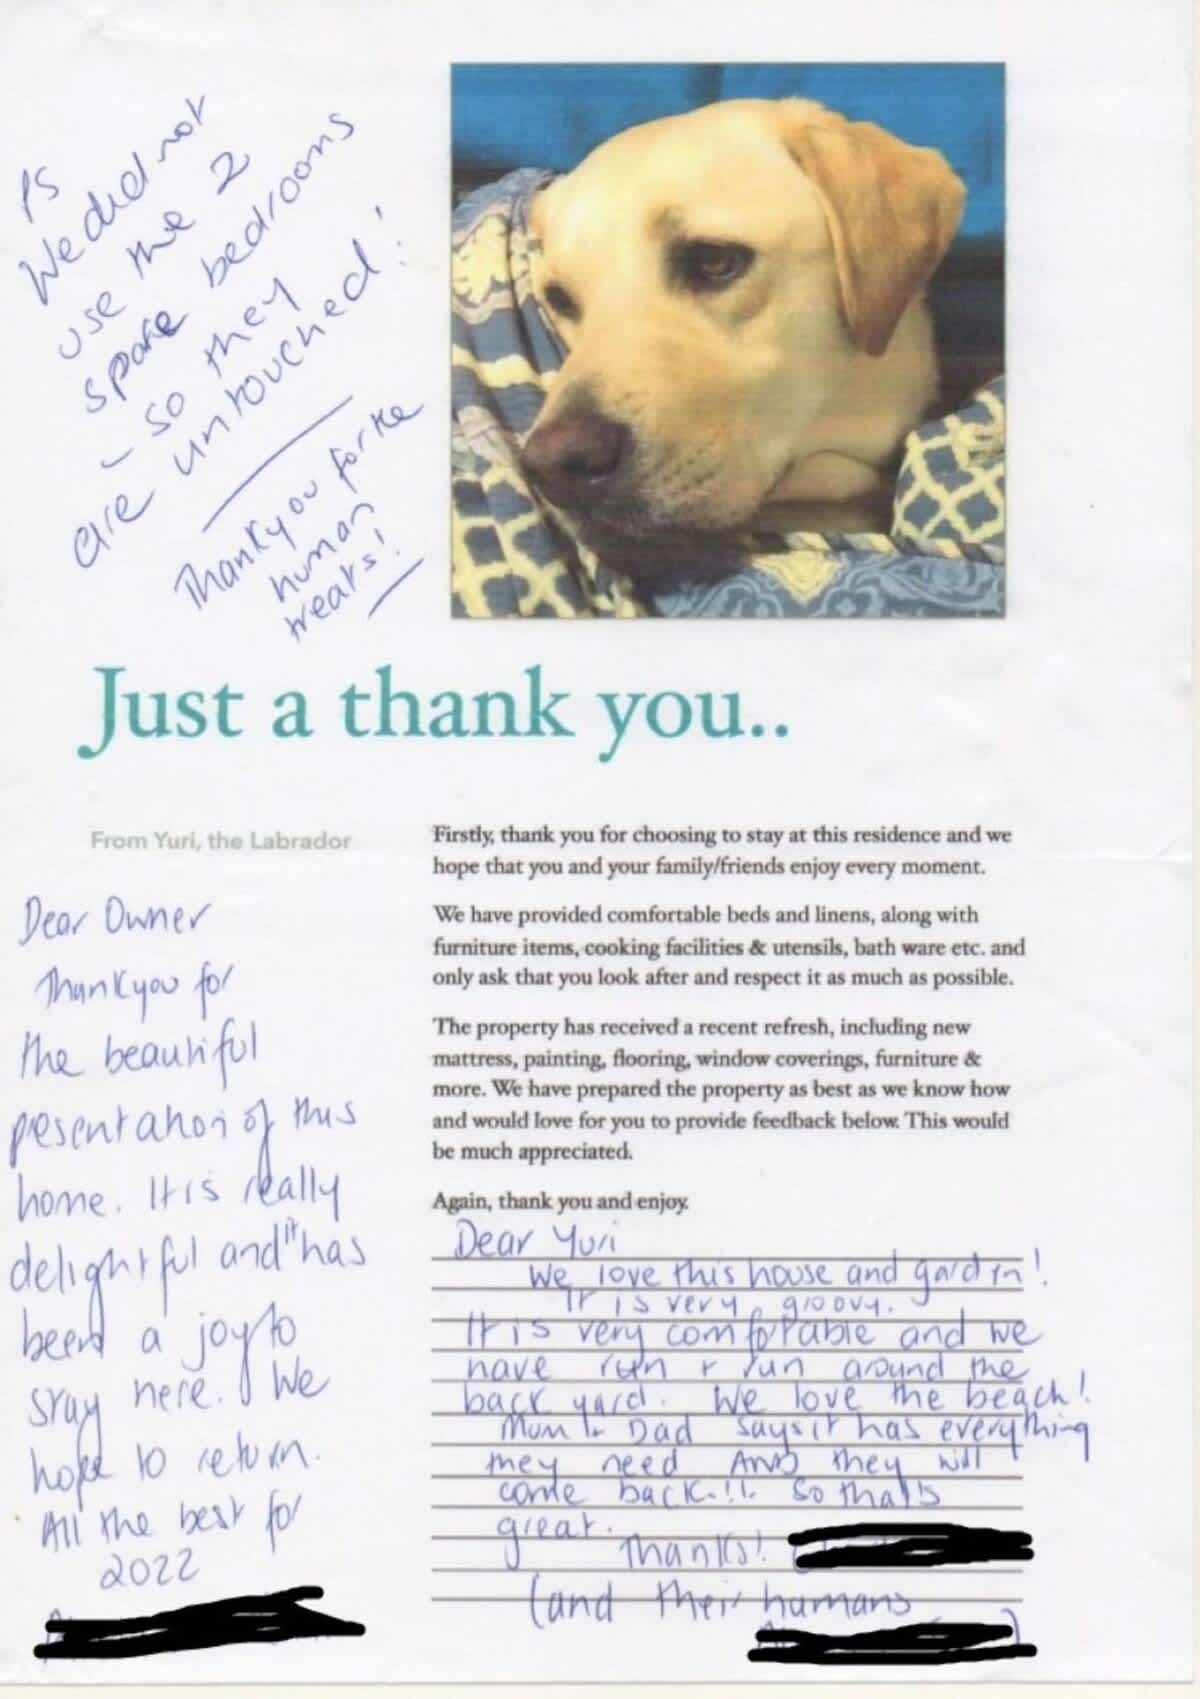 PS
We did not
use the 2
spare bedrooms
- so they
are untouched!
Thankyou for the
human
treats!
Just a thank you..
From Yuri, the Labrador
Dear Owner
Thankyou for
the beautiful
presentation of this
home. It is really
delightful and it has
been a joy to
stay here. We
hope to return.
All the best for
2022
Firstly, thank you for choosing to stay at this residence and we
hope that you and your family/friends enjoy every moment.
We have provided comfortable beds and linens, along with
furniture items, cooking facilities & utensils, bath ware etc. and
only ask that you look after and respect it as much as possible.
The property has received a recent refresh, including new
mattress, painting, flooring, window coverings, furniture &
more. We have prepared the property as best as we know how
and would love for you to provide feedback below. This would
be much appreciated.
Again, thank you and enjoy.
Dear Yuri
We love this house and garden!
It is very groovy.
It is very comfortable and we
have run & run around the
back yard. We love the beach!
Mum & Dad says it has everything
they need AND they will
come back.!! So thats
great.
Thanks!
(and their humans
)